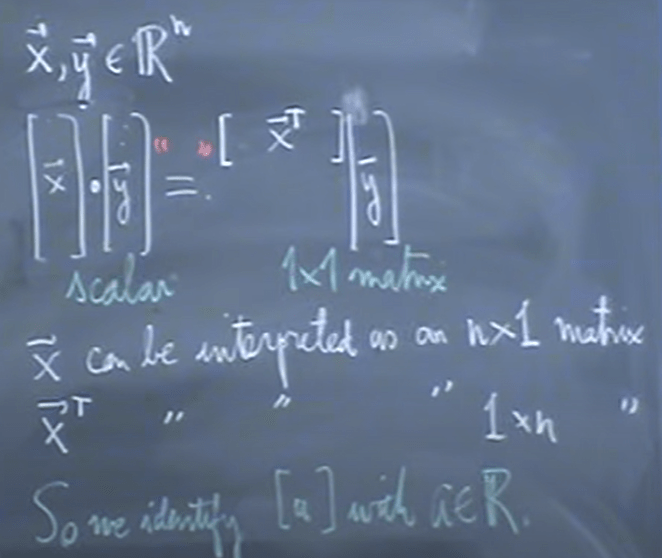 x⃗, y⃗ ∈ ℝⁿ
[x⃗] · [y⃗] "=" [x⃗ᵀ] [y⃗]
scalar 1x1 matrix
x⃗ can be interpreted as an n×1 matrix
x⃗ᵀ " " " 1×n "
So we identify [a] with a∈ℝ.